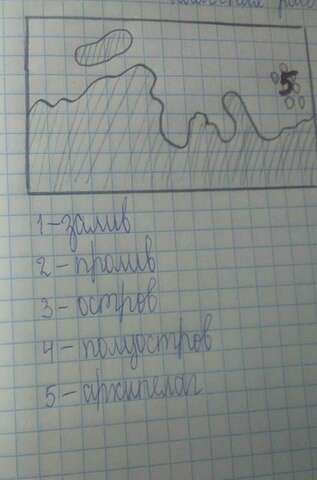 5
1-залив
2-пролив
3-остров
4-полуостров
5-архипелаг